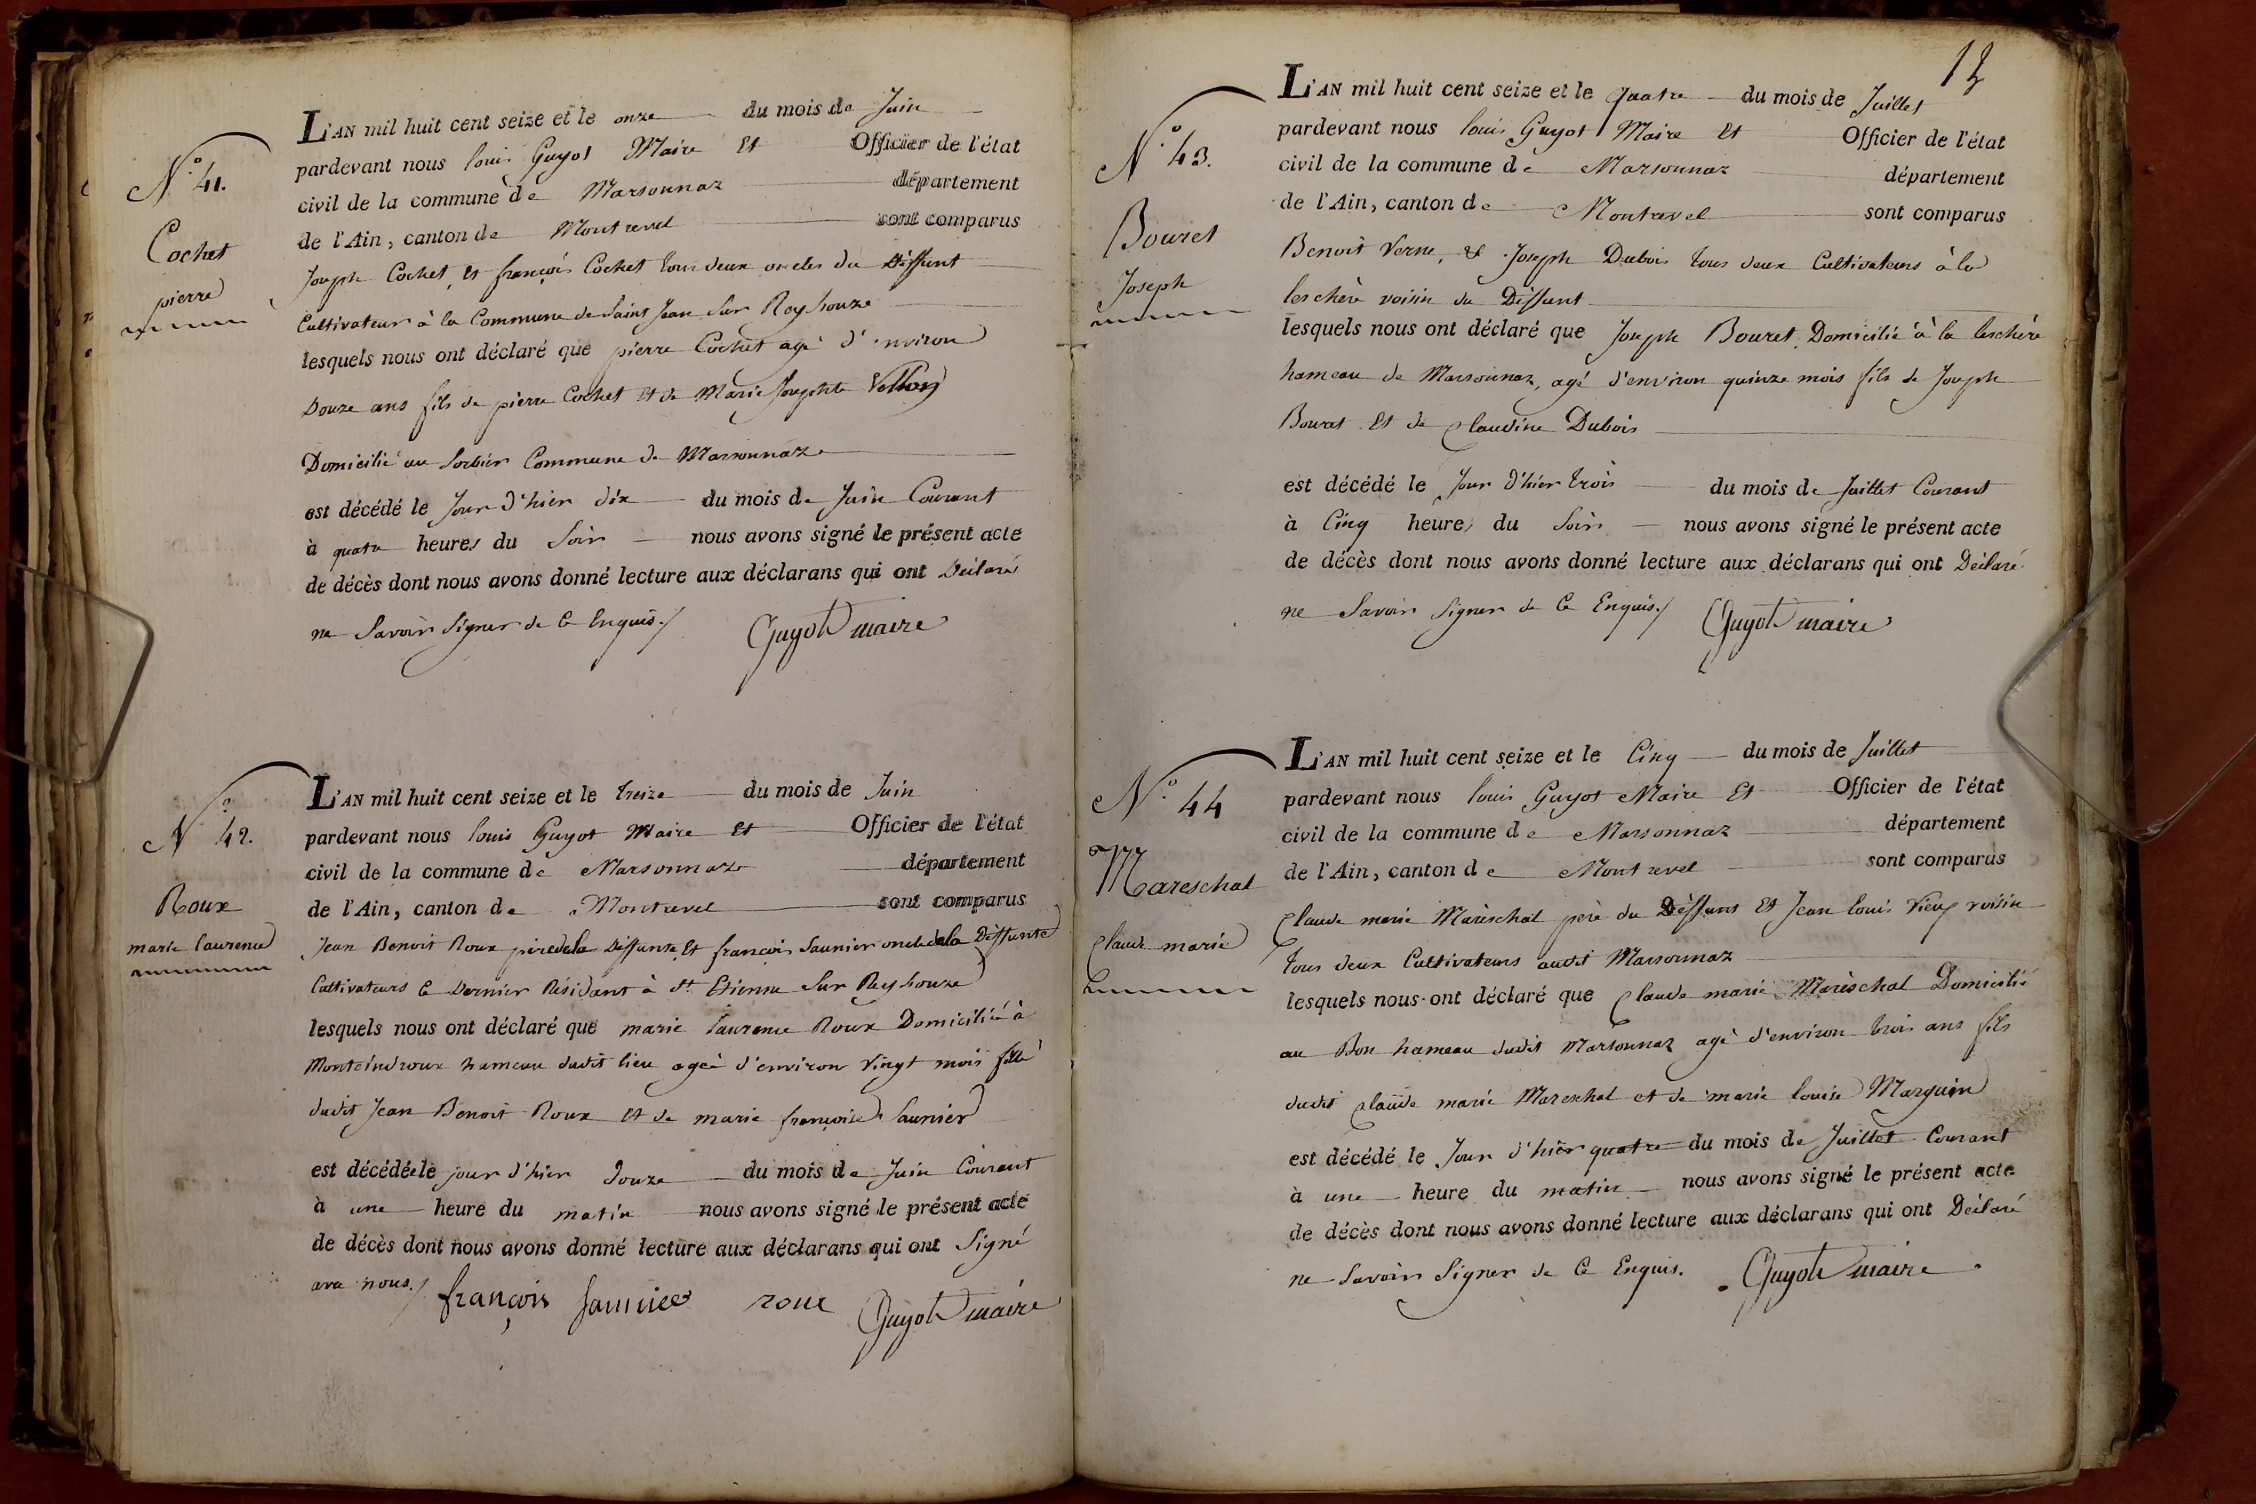 N.o 41.
Cochet
pierre
L'AN mil huit cent seize et le onze du mois de Juin
pardevant nous louis Guyot Maire Et Officier de l'état
civil de la commune de Marsonnaz département
de l'Ain, canton de Montrevel sont comparus
Joseph Cochet, et françois Cochet tous deux oncles du Déffunt
Cultivateur à la Commune de Saint Jean Sur Reyssouze
lesquels nous ont déclaré que pierre Cochet agé d'environ
Douze ans fils de pierre Cochet et de Marie Josephte
Domicilié au Sorbier Commune de Marsonnaz
est décédé le Jour d'hier dix du mois de Juin Courant
à quatre heures du Soir nous avons signé le présent acte
de décès dont nous avons donné lecture aux déclarans qui ont Déclaré
ne Savoir Signer de Ce Enquis./ Guyot maire
N.o 42.
Roux
marie laurence
L'AN mil huit cent seize et le treize du mois de Juin
pardevant nous louis Guyot Maire Et Officier de l'état
civil de la commune de Marsonnaz département
de l'Ain, canton de Montrevel sont comparus
Jean Benoit Roux père de la Déffunte, Et françois Saunier oncle de la Déffunte
Cultivateurs Ce Dernier Résidant à St Etienne Sur Reyssouze
lesquels nous ont déclaré que marie laurence Roux Domiciliée à
Monteindroux hameau dudit lieu agée d'environ vingt mois fille
dudit Jean Benoit Roux et de marie françoise Saunier
est décédée le jour d'hier Douze du mois de Juin Courant
à une heure du matin nous avons signé le présent acte
de décès dont nous avons donné lecture aux déclarans qui ont Signé
avec nous./ françois Saunier roux Guyot maire
N.o 43.
Bouret
Joseph
L'AN mil huit cent seize et le quatre du mois de Juillet
pardevant nous louis Guyot Maire Et Officier de l'état
civil de la commune de Marsonnaz département
de l'Ain, canton de Montrevel sont comparus
Benoit Verne, & Joseph Dubois tous deux Cultivateurs à la
leschère voisin du Déffunt
lesquels nous ont déclaré que Joseph Bouret Domicilié à la leschère
hameau de Marsonnaz, agé d'environ quinze mois fils de Joseph
Bouret Et de Claudine Dubois
est décédé le Jour d'hier trois du mois de Juillet Courant
à Cinq heures du Soir nous avons signé le présent acte
de décès dont nous avons donné lecture aux déclarans qui ont Déclaré
ne Savoir Signer de Ce Enquis./ Guyot maire
N.o 44
Mareschal
Claude marie
L'AN mil huit cent seize et le Cinq du mois de Juillet
pardevant nous louis Guyot Maire Et Officier de l'état
civil de la commune de Marsonnaz département
de l'Ain, canton de Montrevel sont comparus
Claude marie Maréschal père du Déffunt Et Jean louis voisin
tous deux Cultivateurs audit Marsonnaz
lesquels nous ont déclaré que Claude marie Maréschal Domicilié
au Bon hameau dudit Marsonnaz agé d'environ trois ans fils
dudit Claude marie Mareschal et de marie louise Marguin
est décédé le Jour d'hier quatre du mois de Juillet Courant
à une heure du matin nous avons signé le présent acte
de décès dont nous avons donné lecture aux déclarans qui ont Déclaré
ne Savoir Signer de Ce Enquis. Guyot maire